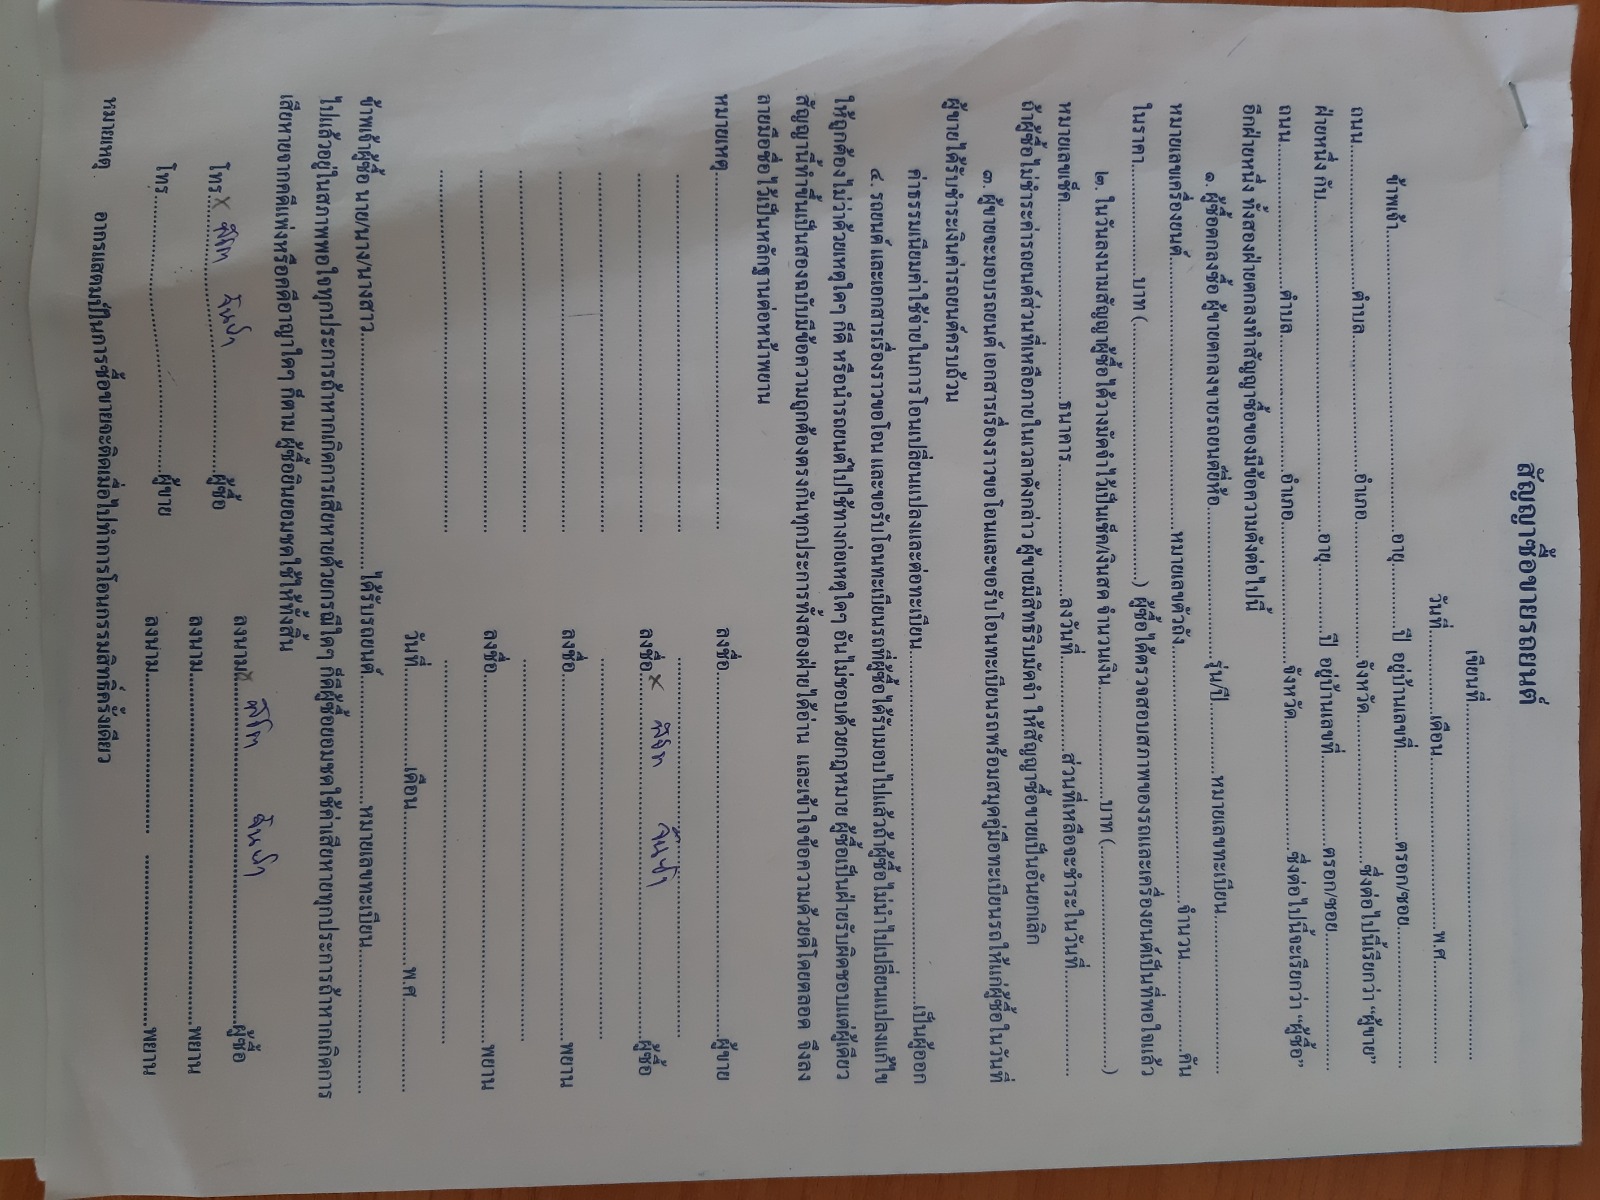 สัญญาซื้อขายรถยนต์
เขียนที่........................................
วันที่................เดือน................................พ.ศ................
ข้าพเจ้า........................................อายุ............ปี อยู่บ้านเลขที่................ตรอก/ซอย................
ถนน................ตำบล................อำเภอ................จังหวัด................ซึ่งต่อไปนี้เรียกว่า “ผู้ขาย”
ฝ่ายหนึ่ง กับ........................................อายุ............ปี อยู่บ้านเลขที่................ตรอก/ซอย................
ถนน................ตำบล................อำเภอ................จังหวัด................ซึ่งต่อไปนี้จะเรียกว่า “ผู้ซื้อ”
อีกฝ่ายหนึ่ง ทั้งสองฝ่ายตกลงทำสัญญาซื้อของมีข้อความดังต่อไปนี้
๑. ผู้ซื้อตกลงซื้อ ผู้ขายตกลงขายรถยนต์ยี่ห้อ................รุ่น/ปี................หมายเลขทะเบียน................
หมายเลขเครื่องยนต์................................หมายเลขตัวถัง................................จำนวน................คัน
ในราคา................บาท (................................) ผู้ซื้อได้ตรวจสอบสภาพของรถและเครื่องยนต์เป็นที่พอใจแล้ว
๒. ในวันลงนามสัญญาผู้ซื้อ ได้วางมัดจำไว้เป็นเช็ค/เงินสด จำนวนเงิน................บาท (................................)
หมายเลขเช็ค................ธนาคาร................ลงวันที่................ส่วนที่เหลือจะชำระในวันที่................
ถ้าผู้ซื้อไม่ชำระค่ารถยนต์ส่วนที่เหลือภายในเวลาดังกล่าว ผู้ขายมีสิทธิริบมัดจำ ให้สัญญาซื้อขายเป็นอันยกเลิก
๓. ผู้ขายจะมอบรถยนต์ เอกสารเรื่องราวขอโอนและขอรับโอนทะเบียนรถพร้อมสมุดคู่มือทะเบียนรถให้แก่ผู้ซื้อในวันที่
ผู้ขายได้รับชำระเงินค่ารถยนต์ครบถ้วน
ค่าธรรมเนียมค่าใช้จ่ายในการโอนเปลี่ยนแปลงและต่อทะเบียน................................เป็นผู้ออก
๔. รถยนต์ และเอกสารเรื่องราวขอโอน และขอรับโอนทะเบียนรถที่ผู้ซื้อ ได้รับมอบไปแล้วถ้าผู้ซื้อไม่นำไปเปลี่ยนแปลงแก้ไข
ให้ถูกต้องไม่ว่าด้วยเหตุใดๆ ก็ดี หรือนำรถยนต์ไปใช้ทางก่อเหตุใดๆ อันไม่ชอบด้วยกฎหมาย ผู้ซื้อเป็นฝ่ายรับผิดชอบแต่ผู้เดียว
สัญญานี้ทำขึ้นเป็นสองฉบับมีข้อความถูกต้องตรงกันทุกประการทั้งสองฝ่ายได้อ่าน และเข้าใจข้อความด้วยดีโดยตลอด จึงลง
ลายมือชื่อไว้เป็นหลักฐานต่อหน้าพยาน
หมายเหตุ................................ ลงชื่อ................................ผู้ขาย
ลงชื่อ x ................................ผู้ซื้อ
ลงชื่อ................................พยาน
ลงชื่อ................................พยาน
วันที่................เดือน................................พ.ศ................
ข้าพเจ้าผู้ซื้อ นาย/นาง/นางสาว................................ได้รับรถยนต์................หมายเลขทะเบียน................
ไปแล้วอยู่ในสภาพพอใจทุกประการถ้าหากเกิดการเสียหายด้วยกรณีใดๆ ก็ดีผู้ซื้อยอมชดใช้ค่าเสียหายทุกประการถ้าหากเกิดการ
เสียหายจากคดีแพ่งหรือคดีอาญาใดๆ ก็ตาม ผู้ซื้อยินยอมชดใช้ให้ทั้งสิ้น
โทร x ................................ผู้ซื้อ ลงนาม x ................................ผู้ซื้อ
โทร................................ผู้ขาย ลงนาม................................พยาน
ลงนาม................................ ................................พยาน
หมายเหตุ อากรแสตมป์ในการซื้อขายจะติดเมื่อไปทำการโอนกรรมสิทธิ์ครั้งเดียว